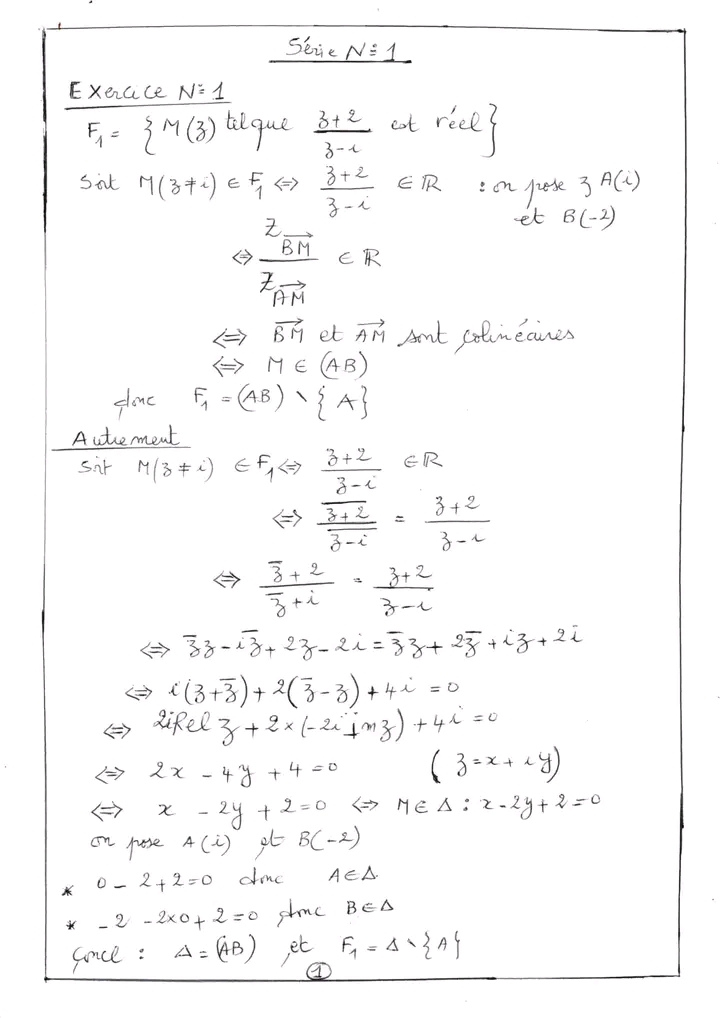 Série N°1
Exercice N°1
F₁ = { M(z) tel que (z+2)/(z-i) est réel }
Soit M(z≠i) ∈ F₁ ⇔ (z+2)/(z-i) ∈ ℝ : on pose z A(i)
et B(-2)
⇔ Z_{\overrightarrow{BM}} / Z_{\overrightarrow{AM}} ∈ ℝ
⇔ \overrightarrow{BM} et \overrightarrow{AM} sont colinéaires
⇔ M ∈ (AB)
donc F₁ = (AB) \ {A}
Autrement
Soit M(z≠i) ∈ F₁ ⇔ (z+2)/(z-i) ∈ ℝ
⇔ \overline{z+2} / \overline{z-i} = (z+2)/(z-i)
⇔ (z̄+2)/(z̄+i) = (z+2)/(z-i)
⇔ z̄z - iz̄ + 2z - 2i = z̄z + 2z̄ + iz + 2i
⇔ i(z+z̄) + 2(z̄-z) + 4i = 0
⇔ 2iRel z + 2×(-2i Im z) + 4i = 0
⇔ 2x - 4y + 4 = 0 (z = x + iy)
⇔ x - 2y + 2 = 0 ⇔ M ∈ Δ : x - 2y + 2 = 0
on pose A(i) et B(-2)
* 0 - 2 + 2 = 0 donc A ∈ Δ
* -2 - 2×0 + 2 = 0 donc B ∈ Δ
Concl : Δ = (AB) et F₁ = Δ \ {A}
1